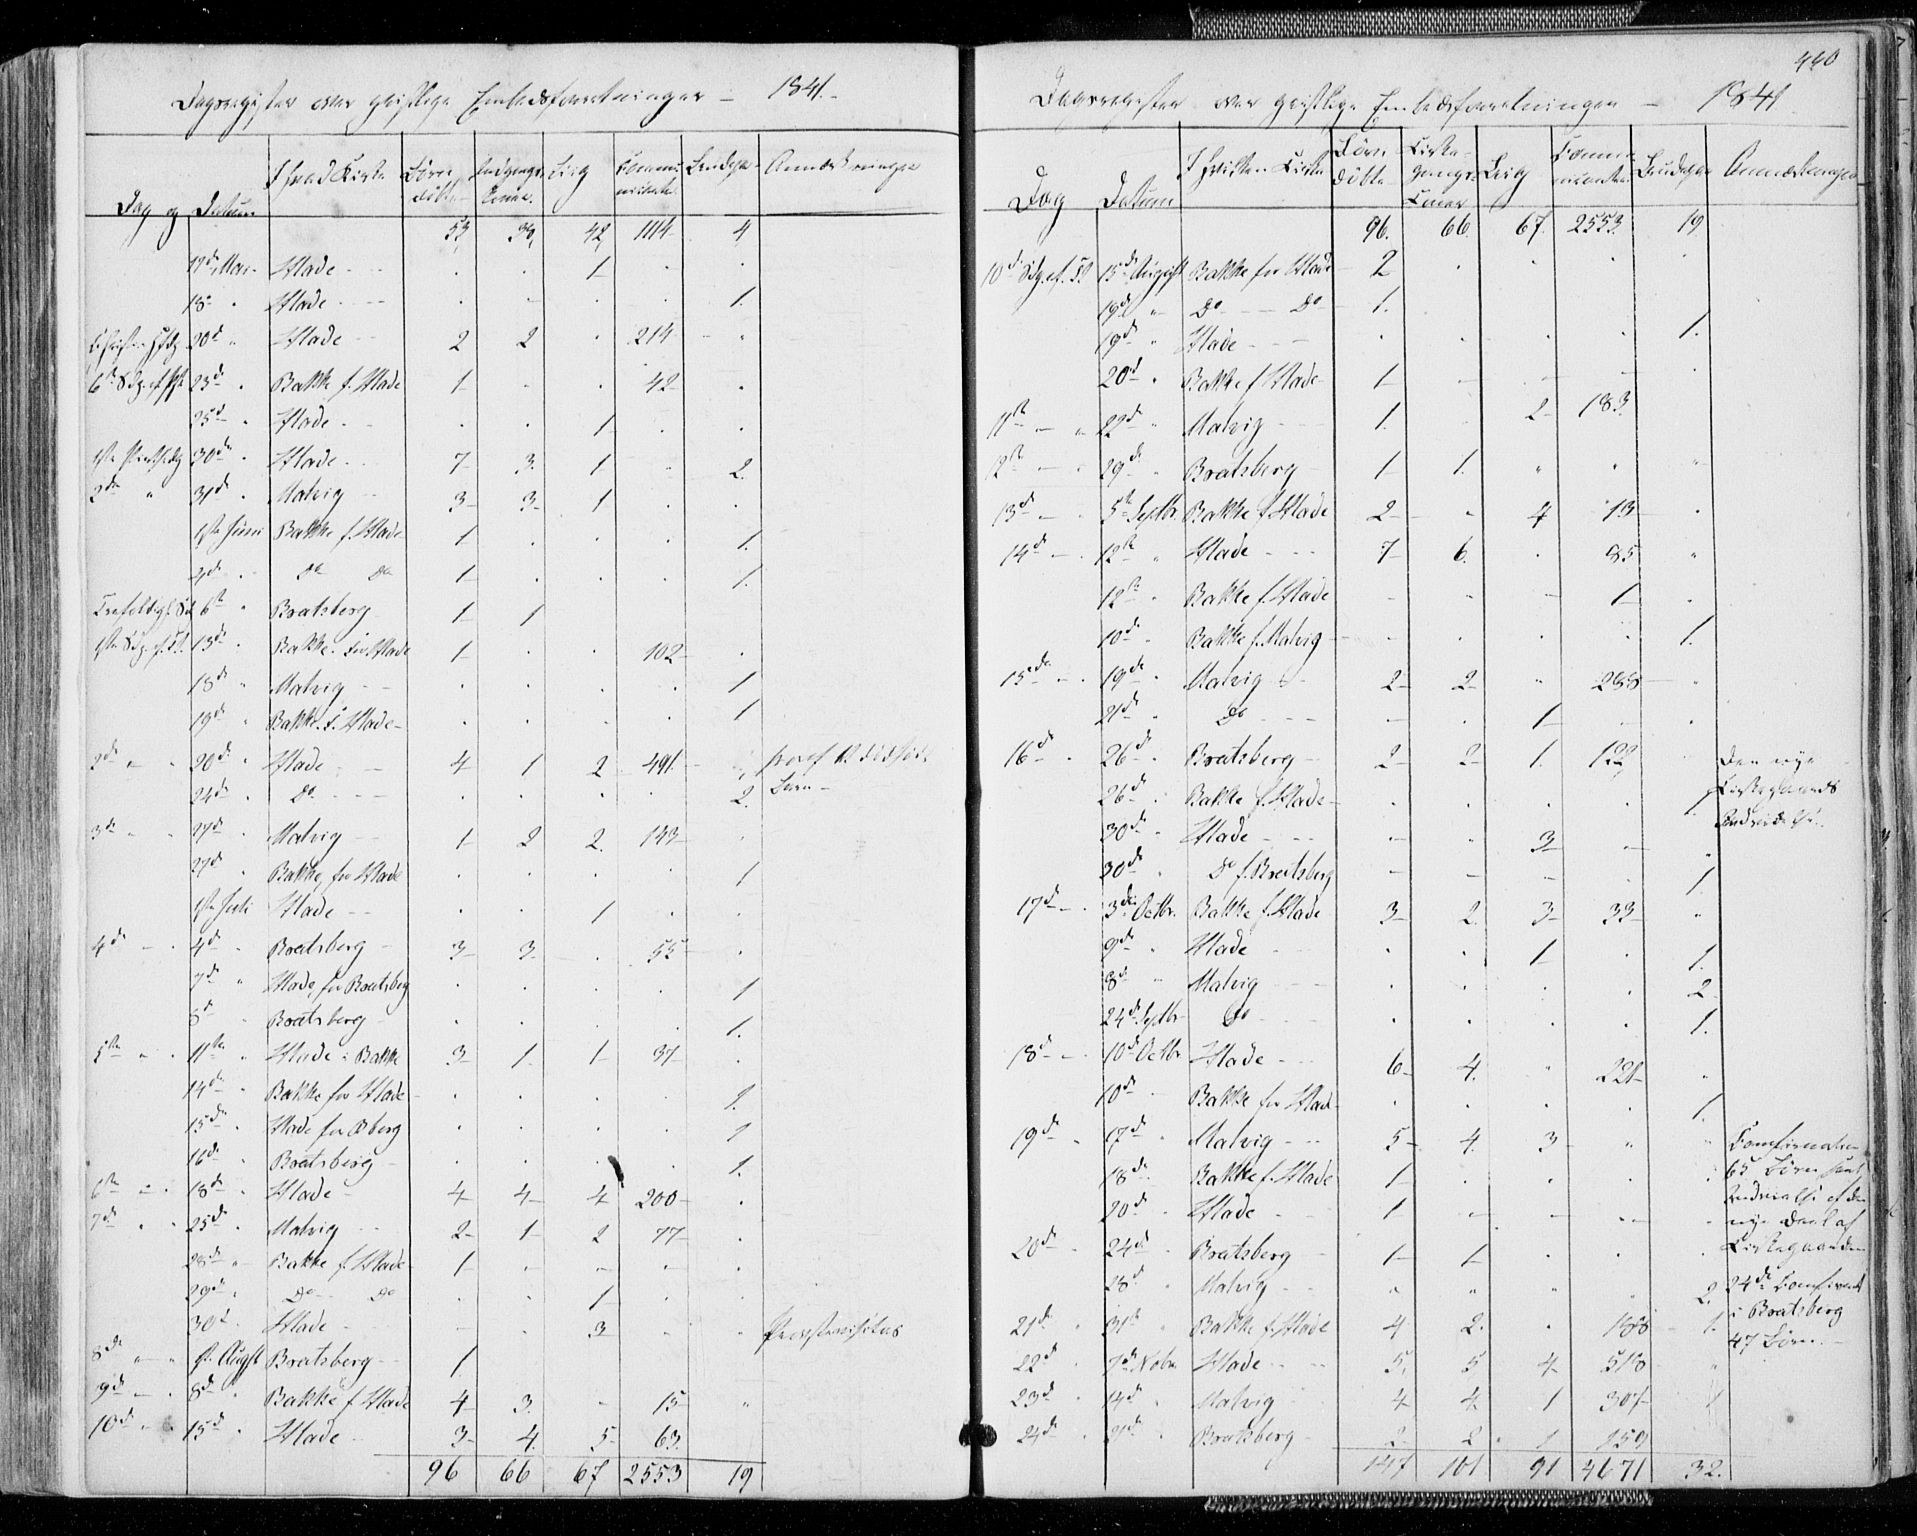 Dagregister over geistlige Embedsforretninger – 1841.
Dag og Datum I hvad Kirke Børn døbte Indgangs Koner Liig Communicanter Brudepar Anmærkninger
53 38 42 1114 4
17d Mai Hlade 1
18 Hlade 1.
20d Hlade 2 2 214
6te Sdg. ef. Psk 23d Bakke f. Hlade 1 42
25d Hlade 1
1ste Pintsedg 30de Hlade 7 3. 1 2.
2den 31de Malvig 3 3 1
1ste Juni Bakke f. Hlade 1 1.
2de Do Do 1 1.
Trefoldigh. Sd 6te Bratsberg 1 1
1ste Sdg. ef. Tr. 13de Bakke for Hlade 1 102
18de Malvig 1
19de Bakke f. Hlade 1
2de 20de Hlade 4 1 2 491.
24de Do 2.
Børn
3de 27de Malvig 1 2 2. 143
27de Bakke for Hlade 1
1ste Juli Hlade 1
4de 4de Bratsberg 3 3 55
7de Hlade for Bratsberg 1
8de Bratsberg 1.
5te 11te Hlade i Bakke 3 1. 1 37
14de Bakke for Hlade 1.
15de Hlade for Bberg 1
16de Bratsberg 1.
6te 18de Hlade 4 4 4 200
7de 25de Malvig 2 1 2 77
28de Bakke f. Hlade 1
29de Do Do 1
30d. Hlade 3 Provstevisitas
8de 1st. Augst Bratsberg 1.
9de 8de Bakke f Hlade 4 3. 15
10de 15de Hlade 3 4. 5 63.
96 66 67 2553 19
440
Dagsregister over geistlige Embedsforretninger – 1841
Dag Datum I hvilken Kirke Børn døbte Kirkegangs-Koner Liig Communicanter Brudepar Anmærkninger
96. 66. 67. 2553. 19
10de Sdg. ef. Tr. 15de August Bakke for Hlade 2
19de Do Do 1.
19de Hlade 1.
20d Bakke f Hlade 1
11te 22de Malvig 1. 2 183
12te 29de Bratsberg 1 1.
13de 5te Septbr. Bakke f. Hlade 2 4 13
14de 12te Hlade 7 6. 85
12te Bakke f. Hlade 1
10de Bakke f. Malvig 1.
15de 19de Malvig 2 2 288
21de Do 1
16de 26de Bratsberg 2 2 1. 122 Den nye
26de Bakke f. Hlade 1. Kirkegaards
30de Hlade 3 Indvielse.
30de Do f. Bratsberg 1
17de 3die Octbr. Bakke f. Hlade 3 2. 3 33
9de Hlade 1 1.
8de Malvig 2
24de Septbr Do 1.
18de 10de Octbr Hlade 6 4. 221
10de Bakke for Hlade 1
19de 17de Malvig 5 4. 3 Confirmation
18de Bakke f. Hlade 1 65 Børn samt
20de Hlade 1 Indvielse af den
nye Deel af
20de 24de Bratsberg 1 1 Kirkegaarden
28de Malvig 2. 24de Confirmt
21de 31te Bakke f. Hlade 4 2. 188 1. i Bratsberg
47 Børn.
22de 7de Nobr. Hlade 5. 5 4 518
23de 14de Malvig 4 4 1 307 1
24de 21de Bratsberg 2 2 1 159
147 101 91 4671 32.